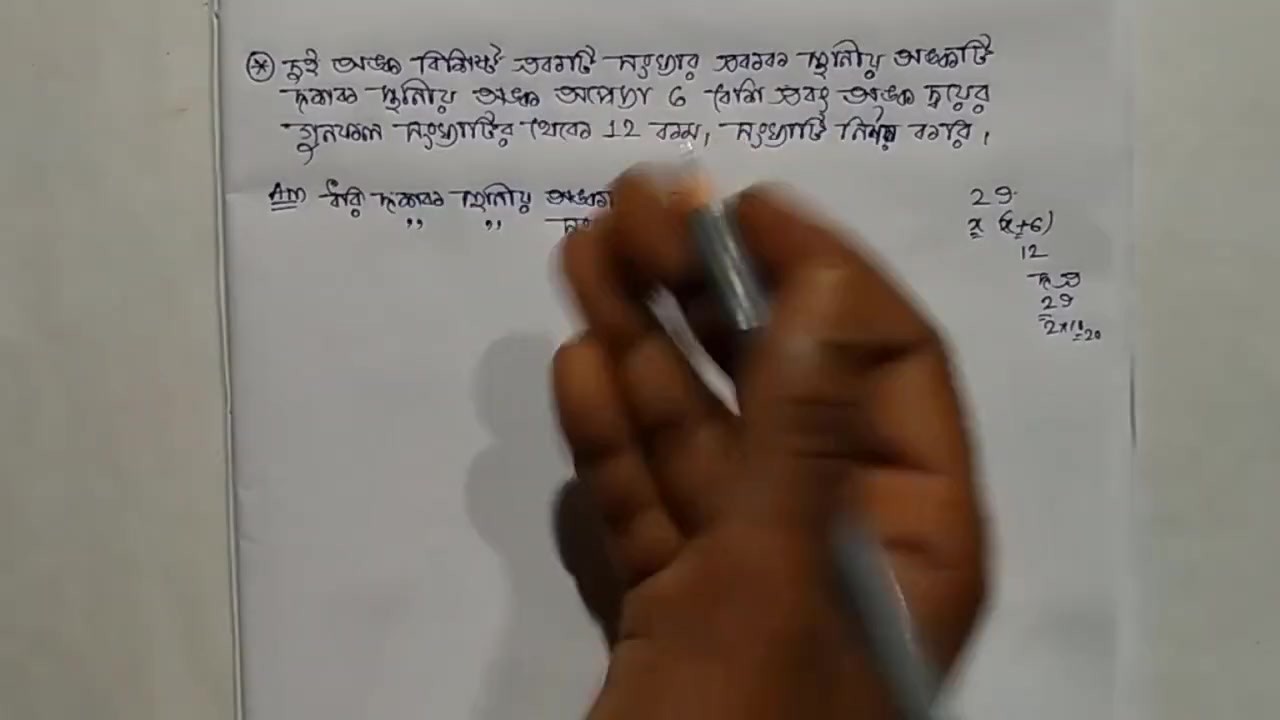 * দুই অঙ্ক বিশিষ্ট একটি সংখ্যার একক স্থানীয় অঙ্কটি
দশক স্থানীয় অঙ্ক অপেক্ষা 6 বেশি এবং অঙ্ক দ্বয়ের
গুনফল সংখ্যাটির থেকে 12 কম, সংখ্যাটি নির্ণয় করি।
Ans ধরি দশক স্থানীয় অঙ্ক
" "
29
x (x+6)
12
দ এ
29
2×10=20